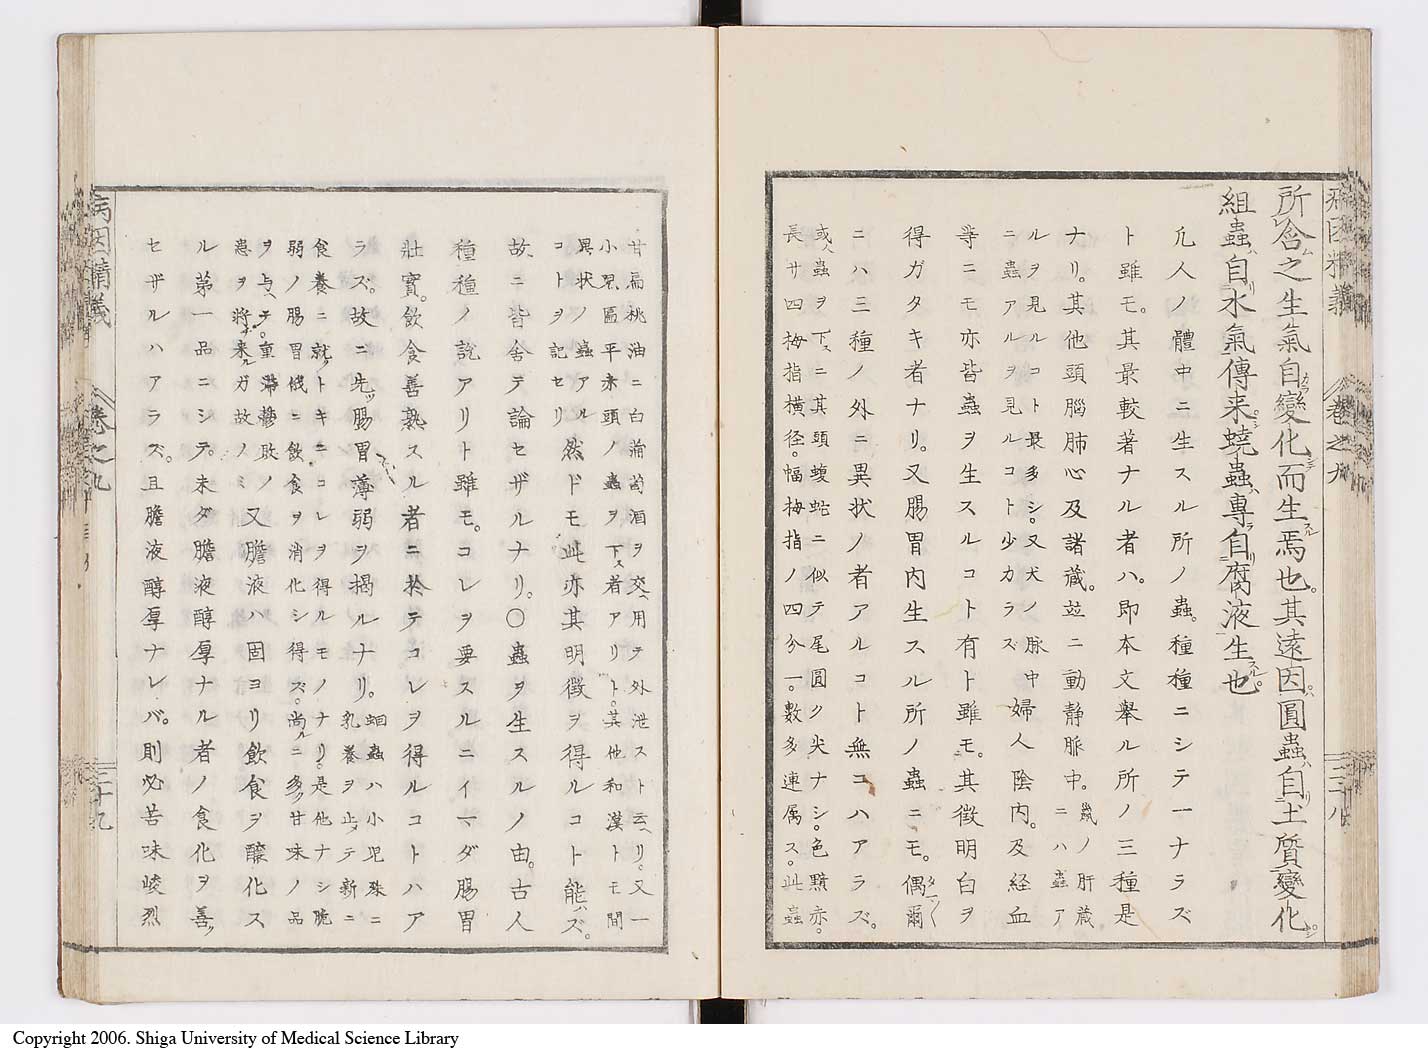 病因精義 卷之九 三十八
所含之生氣自變化而生焉也。其遠因圓蟲自土質變化
組蟲自水氣傳来蟯蟲專自腐液生也
凢人ノ體中ニ生スル所ノ蟲。種種ニシテ一ナラズ
ト雖モ。其最較著ナル者ハ。即本文舉ル所ノ三種是
ナリ。其他頭腦肺心及諸藏。竝ニ動静脈中。幾ノ肝蔵
ニハ蟲ア
ルヲ見ルコト最多シ。又犬ノ脉中
ニ蟲アルヲ見ルコト少カラズ
婦人陰内。及経血
等ニモ亦皆蟲ヲ生スルコト有ト雖モ。其徴明白ヲ
得ガタキ者ナリ。又腸胃内生スル所ノ蟲ニモ。偶爾
ニハ三種ノ外ニ異状ノ者アルコト無コハアラズ。
或ハ蟲ヲ下スニ其頭蝮蛇ニ似テ尾圓ク尖ナシ。色黙亦。
長サ四梅指横径。幅梅指ノ四分一。數多連属ス。此蟲
甘扁桃油ニ白葡萄酒ヲ交ヘ用テ外泄スト云ヘリ。又一
小児區平赤頭ノ蟲ヲ下ス者アリト。其他和漢トモ間
異状ノ蟲アル
コトヲ記セリ
然ドモ此亦其明徴ヲ得ルコト能ハズ。
故ニ皆舍テ論セザルナリ。〇蟲ヲ生スルノ由。古人
種種ノ説アリト雖モ。コレヲ要スルニイマダ腸胃
壯實。飲食善熟スル者ニ於テコレヲ得ルコトハア
ラズ。故ニ先ツ腸胃薄弱ヲ掲ルナリ。蛔蟲ハ小児殊ニ
乳養ヲ止ッテ新ニ
食養ニ就ットキニコレヲ得ルモノナリ。是他ナシ脆
弱ノ腸胃俄ニ飲食ヲ消化シ得ズ。尚ルニ多ク甘味ノ品
ヲ与ヘテ。重滞欝敗ノ
患ヲ将ナ来ルガ故ノミ
又膽液ハ固ヨリ飲食ヲ釀化ス
ル第一品ニシテ。未ダ膽液醇厚ナル者ノ食化ヲ善ッ
セザルハアラズ。且膽液醇厚ナレバ。則必苦味峻烈
病因精義 卷之九 三十九
Copyright 2006. Shiga University of Medical Science Library